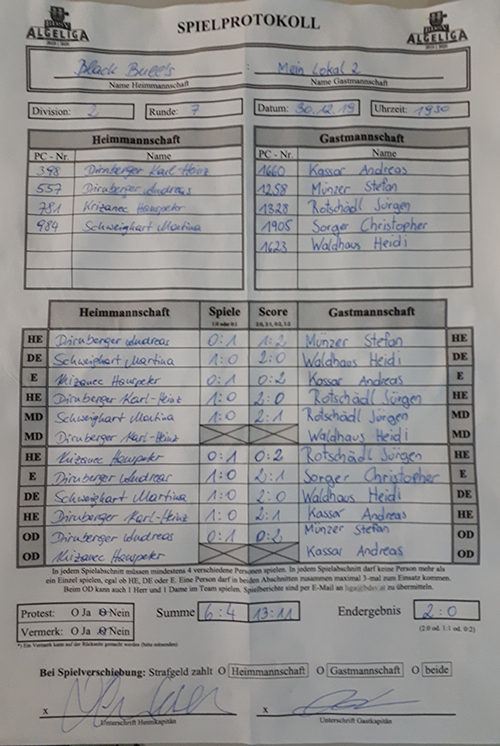 ALGELIGA SPIELPROTOKOLL ALGELIGA
Black Bull's : Mein Lokal 2
Name Heimmannschaft Name Gastmannschaft
Division: 2 Runde: 7 Datum: 30.12.19 Uhrzeit: 1930
Heimmannschaft Gastmannschaft
PC - Nr. Name PC - Nr. Name
398 Dirnberger Karl-Heinz 1660 Kassar Andreas
557 Dirnberger Andreas 1258 Münzer Stefan
781 Krizanec Hanspeter 1328 Rotschädl Jürgen
984 Schweighart Martina 1905 Sorger Christopher
1623 Waldhaus Heidi
Heimmannschaft Spiele Score Gastmannschaft
1:0 oder 0:1 2:0, 2:1, 0:2, 1:2
HE Dirnberger Andreas 0:1 1:2 Münzer Stefan HE
DE Schweighart Martina 1:0 2:0 Waldhaus Heidi DE
E Krizanec Hanspeter 0:1 0:2 Kassar Andreas E
HE Dirnberger Karl-Heinz 1:0 2:0 Rotschädl Jürgen HE
MD Schweighart Martina 1:0 2:1 Rotschädl Jürgen MD
MD Dirnberger Karl-Heinz Waldhaus Heidi MD
HE Krizanec Hanspeter 0:1 0:2 Rotschädl Jürgen HE
E Dirnberger Andreas 1:0 2:1 Sorger Christopher E
DE Schweighart Martina 1:0 2:0 Waldhaus Heidi DE
HE Dirnberger Karl-Heinz 1:0 2:1 Kassar Andreas HE
OD Dirnberger Andreas 0:1 0:2 Münzer Stefan OD
OD Krizanec Hanspeter Kassar Andreas OD
In jedem Spielabschnitt müssen mindestens 4 verschiedene Personen spielen. In jedem Spielabschnitt darf keine Person mehr als
ein Einzel spielen, egal ob HE, DE oder E. Eine Person darf in beiden Abschnitten zusammen maximal 3-mal zum Einsatz kommen.
Beim OD kann auch 1 Herr und 1 Dame im Team spielen. Spielberichte sind per E-Mail an zu übermitteln.
Protest: O Ja O Nein Summe 6:4 13:11 Endergebnis 2:0
Vermerk: O Ja O Nein (2:0 od. 1:1 od. 0:2)
*) Ein Vermerk kann auf der Rückseite gemacht werden (bitte ankreuzen)
Bei Spielverschiebung: Strafgeld zahlt O Heimmannschaft O Gastmannschaft O beide
x x
Unterschrift Heimkapitän Unterschrift Gastkapitän